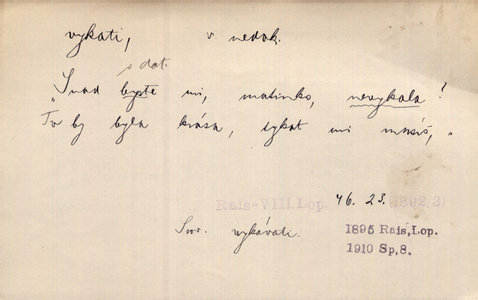 vykati, v. nedok.
s dat.
„Snad byste mi, matinko, nevykala?
To by byla krása, tykat mi musíš,"
46. 23.
Rais-VIII, Lop. 1892, 3)
Srov. vykávati.
1895 Rais, Lop.
1910 Sp, 8.